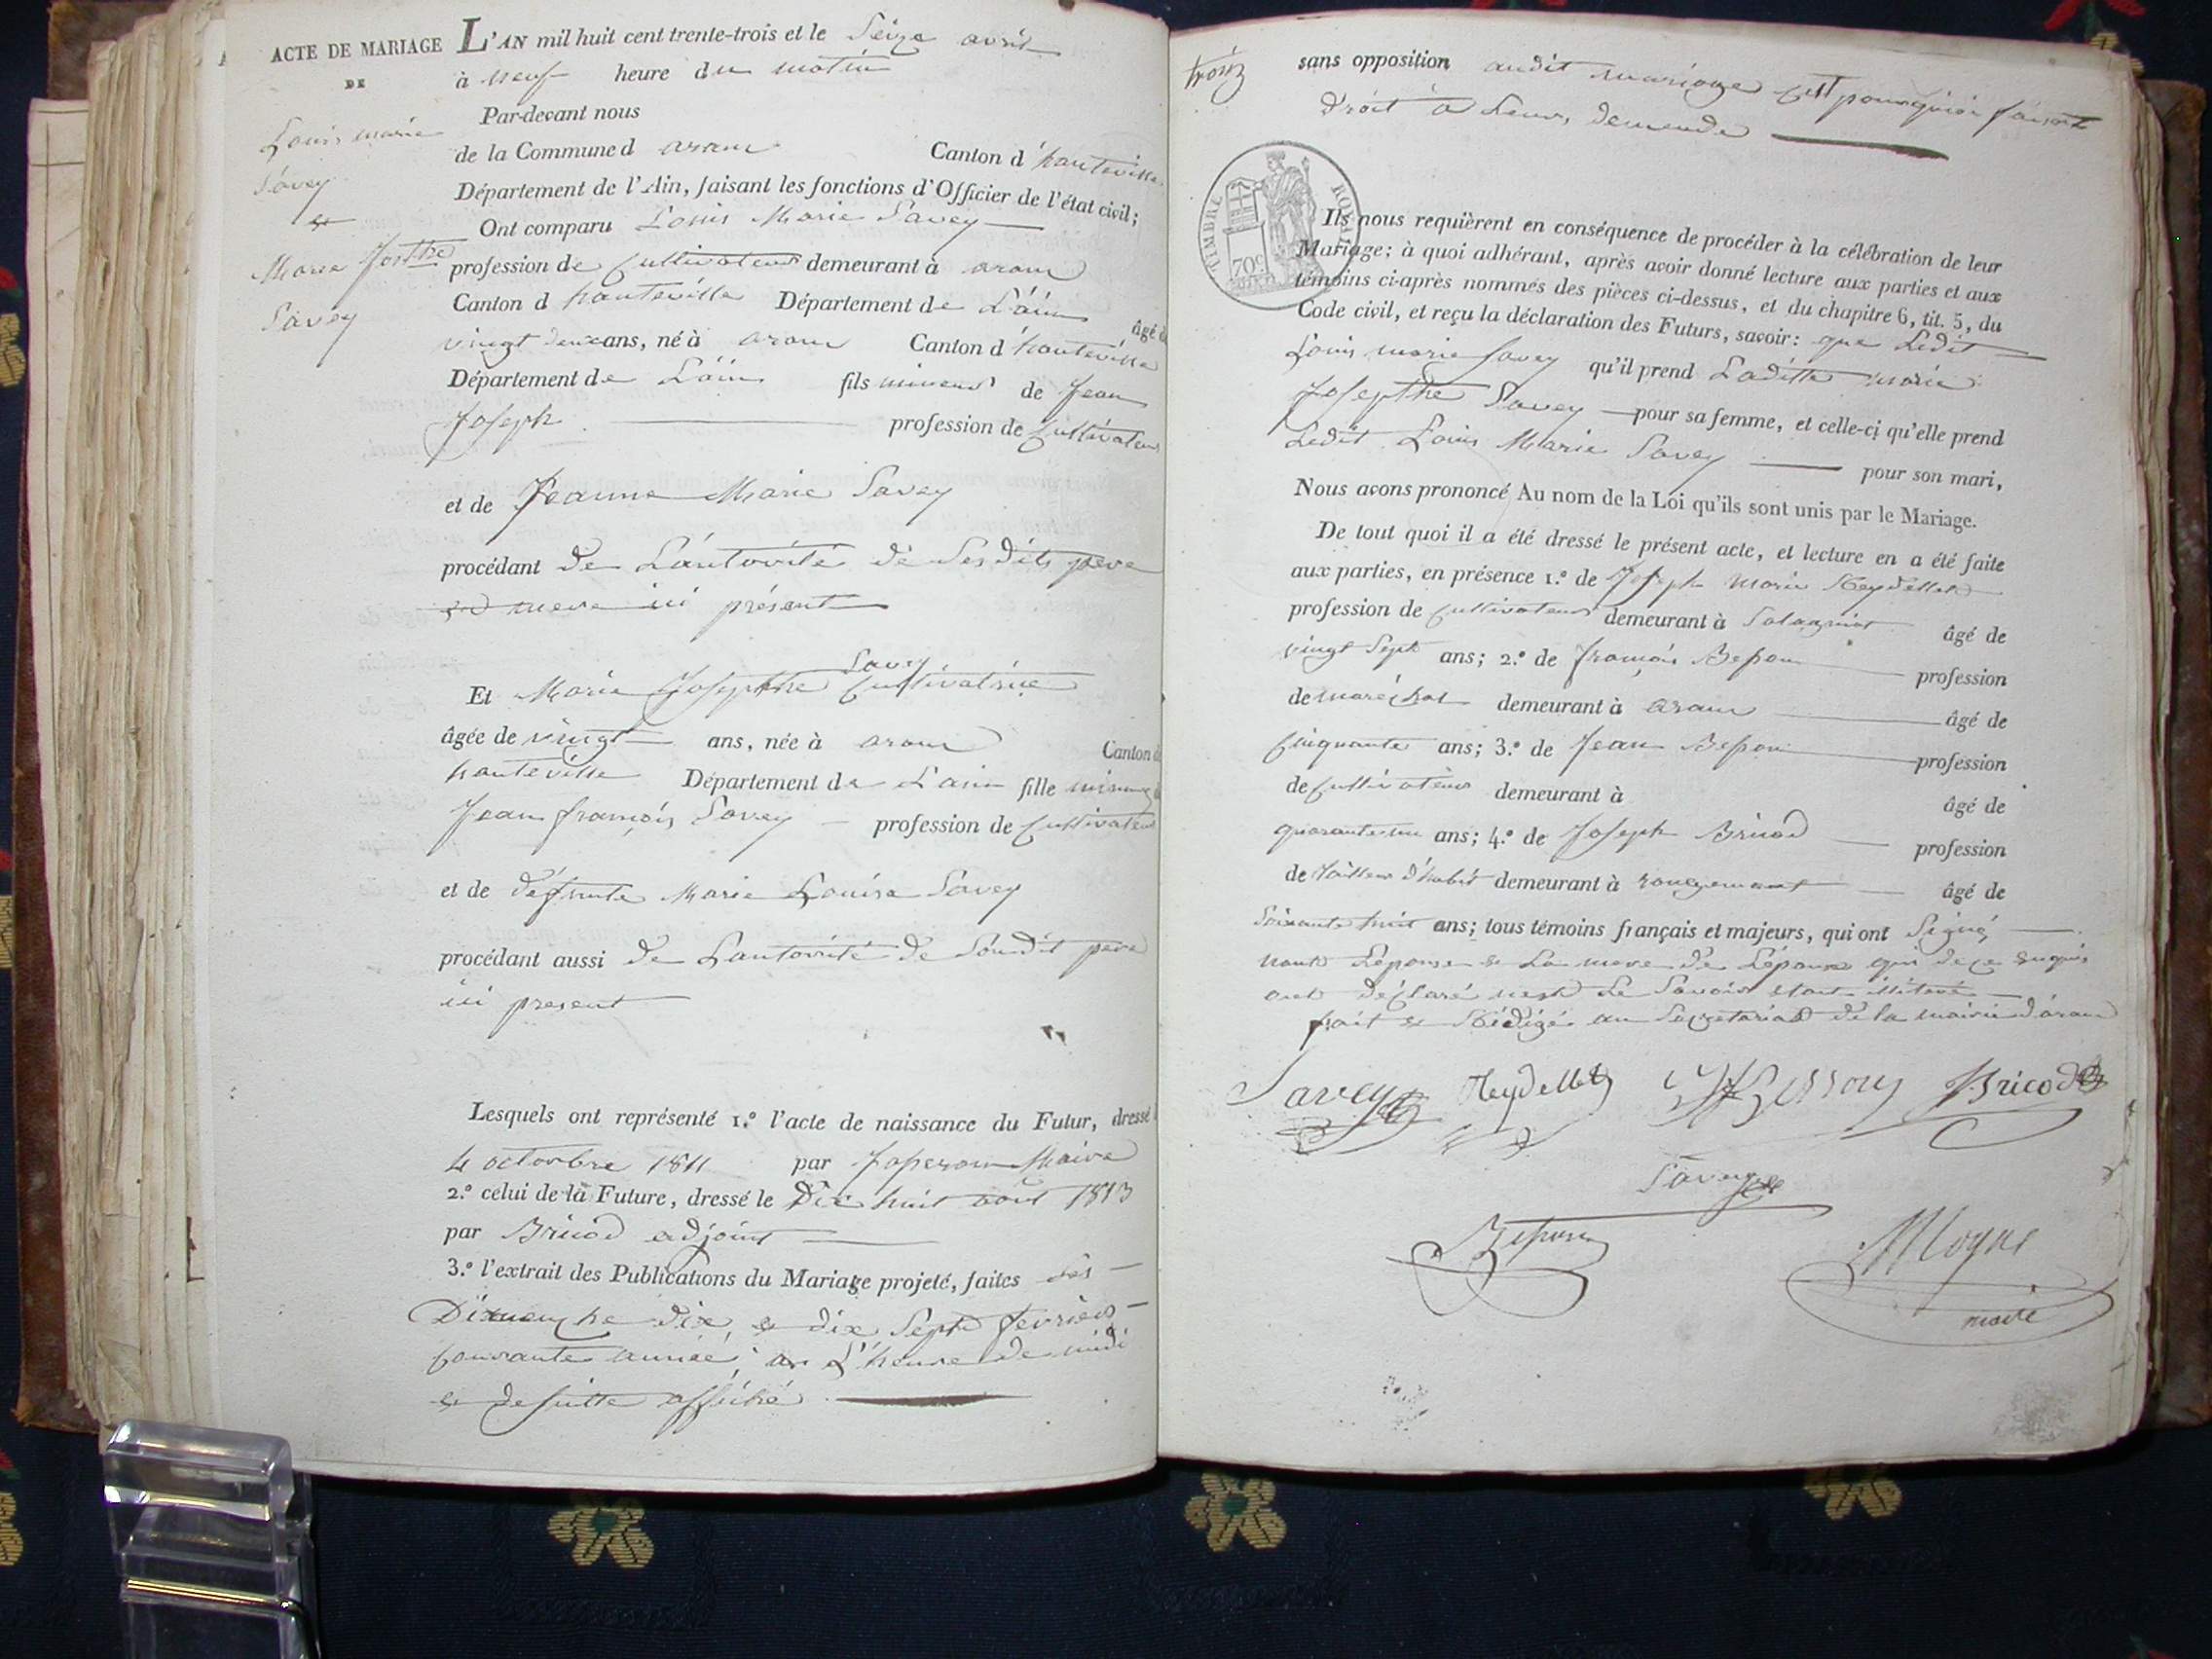 ACTE DE MARIAGE
DE
Louis marie
Savey
et
Marie Josthe
Savey
L'AN mil huit cent trente-trois et le Seize avril
à neuf heure du matin
Par-devant nous
de la Commune d aranc Canton d'hauteville
Département de l'Ain, faisant les fonctions d'Officier de l'état civil;
Ont comparu Louis Marie Savey
profession de Cultivateur demeurant à aranc
Canton d hauteville Département de L'ain âgé de
vingt deux ans, né à aranc Canton d'hauteville
Département de L'ain fils mineur de Jean
Joseph profession de Cultivateur
et de Jeanne Marie Savey
procédant de L'autorité de Sesdits pere
et mere ici présent
Savey
Et Marie Josepthe Cultivatrice
âgée de vingt ans, née à aranc Canton d
hauteville Département de L'ain fille mineure
Jean françois Savey profession de Cultivateur
et de défunte Marie Louise Savey
procédant aussi de L'autorité de Sondit pere
ici present
Lesquels ont représenté 1.° l'acte de naissance du Futur, dressé
4 octobre 1811 par Maire
2.° celui de la Future, dressé le Dix huit août 1813
par Bricod adjoint
3.° l'extrait des Publications du Mariage projeté, faites des
Dimenche dix, et dix Sept fevrier
Courante année, a L'heure de midi
et de suitte affiché
sans opposition audit mariage C'est pourquoi faisant
droit a Leurs demende
TIMBRE ROYAL
70c
Ils nous requièrent en conséquence de procéder à la célébration de leur
Mariage; à quoi adhérant, après avoir donné lecture aux parties et aux
témoins ci-après nommés des pièces ci-dessus, et du chapitre 6, tit. 5, du
Code civil, et reçu la déclaration des Futurs, savoir: que Ledit
Louis marie Savey qu'il prend Laditte marie
Josepthe Savey pour sa femme, et celle-ci qu'elle prend
Ledit Louis Marie Savey pour son mari,
Nous avons prononcé Au nom de la Loi qu'ils sont unis par le Mariage.
De tout quoi il a été dressé le présent acte, et lecture en a été faite
aux parties, en présence 1.° de Joseph Marie Reydellet
profession de Cultivateur demeurant à âgé de
vingt Sept ans; 2.° de françois Besson profession
de maréchal demeurant à aranc âgé de
Cinquante ans; 3.° de Jean Besson profession
de Cultivateur demeurant à âgé de
quarante un ans; 4.° de Joseph Bricod profession
de tailleur d'habit demeurant à rougemont âgé de
Soixante huit ans; tous témoins français et majeurs, qui ont Signé,
L'épouse et La mere de L'époux qui de ce enquis
ont déclaré Le Savoir
fait et Rédigé au Secretariad de la mairie d'aranc
Savey Reydellet Besson Bricod
Savey
Besson Moyne
maire